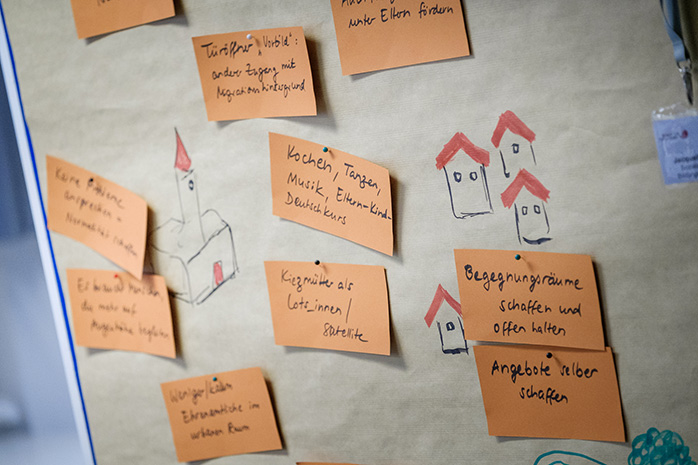 unter Eltern fördern
Türöffner „Vorbild":
anderer Zugang mit
Migrationshintergrund
Kochen, Tanzen,
Musik, Eltern-Kind-
Deutschkurs
Keine Probleme
ansprechen →
Normalität schaffen
Kiezmütter als
Lots_innen/
Satellite
Begegnungsräume
schaffen und
offen halten
Es braucht
die mehr auf
Augenhöhe begleiten
Angebote selber
schaffen
Weniger/kaum
Ehrenamtliche im
urbanen Raum